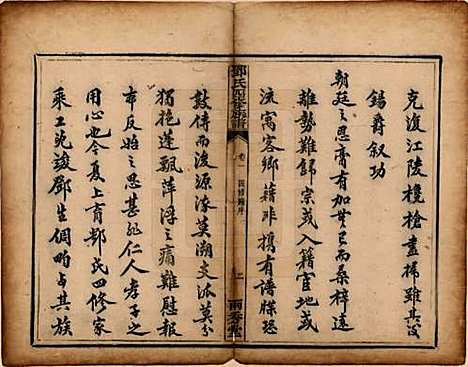 克復江陵欃槍盡掃雖其沒
錫爵叙功
朝廷之恩膏有加無已而桑梓遠
離勢難歸宗或入籍官地或
流寓客鄉籍非携有譜牒恐
鄧氏四修族譜
卷一
上
雨香堂
數傳而後源流莫溯支派莫分
獨抱蓬飄萍浮之痛難慰報
本反始之思甚非仁人孝子之
用心也今夏上育鄧氏四修家
乘工兆竣鄧生倜略占其族